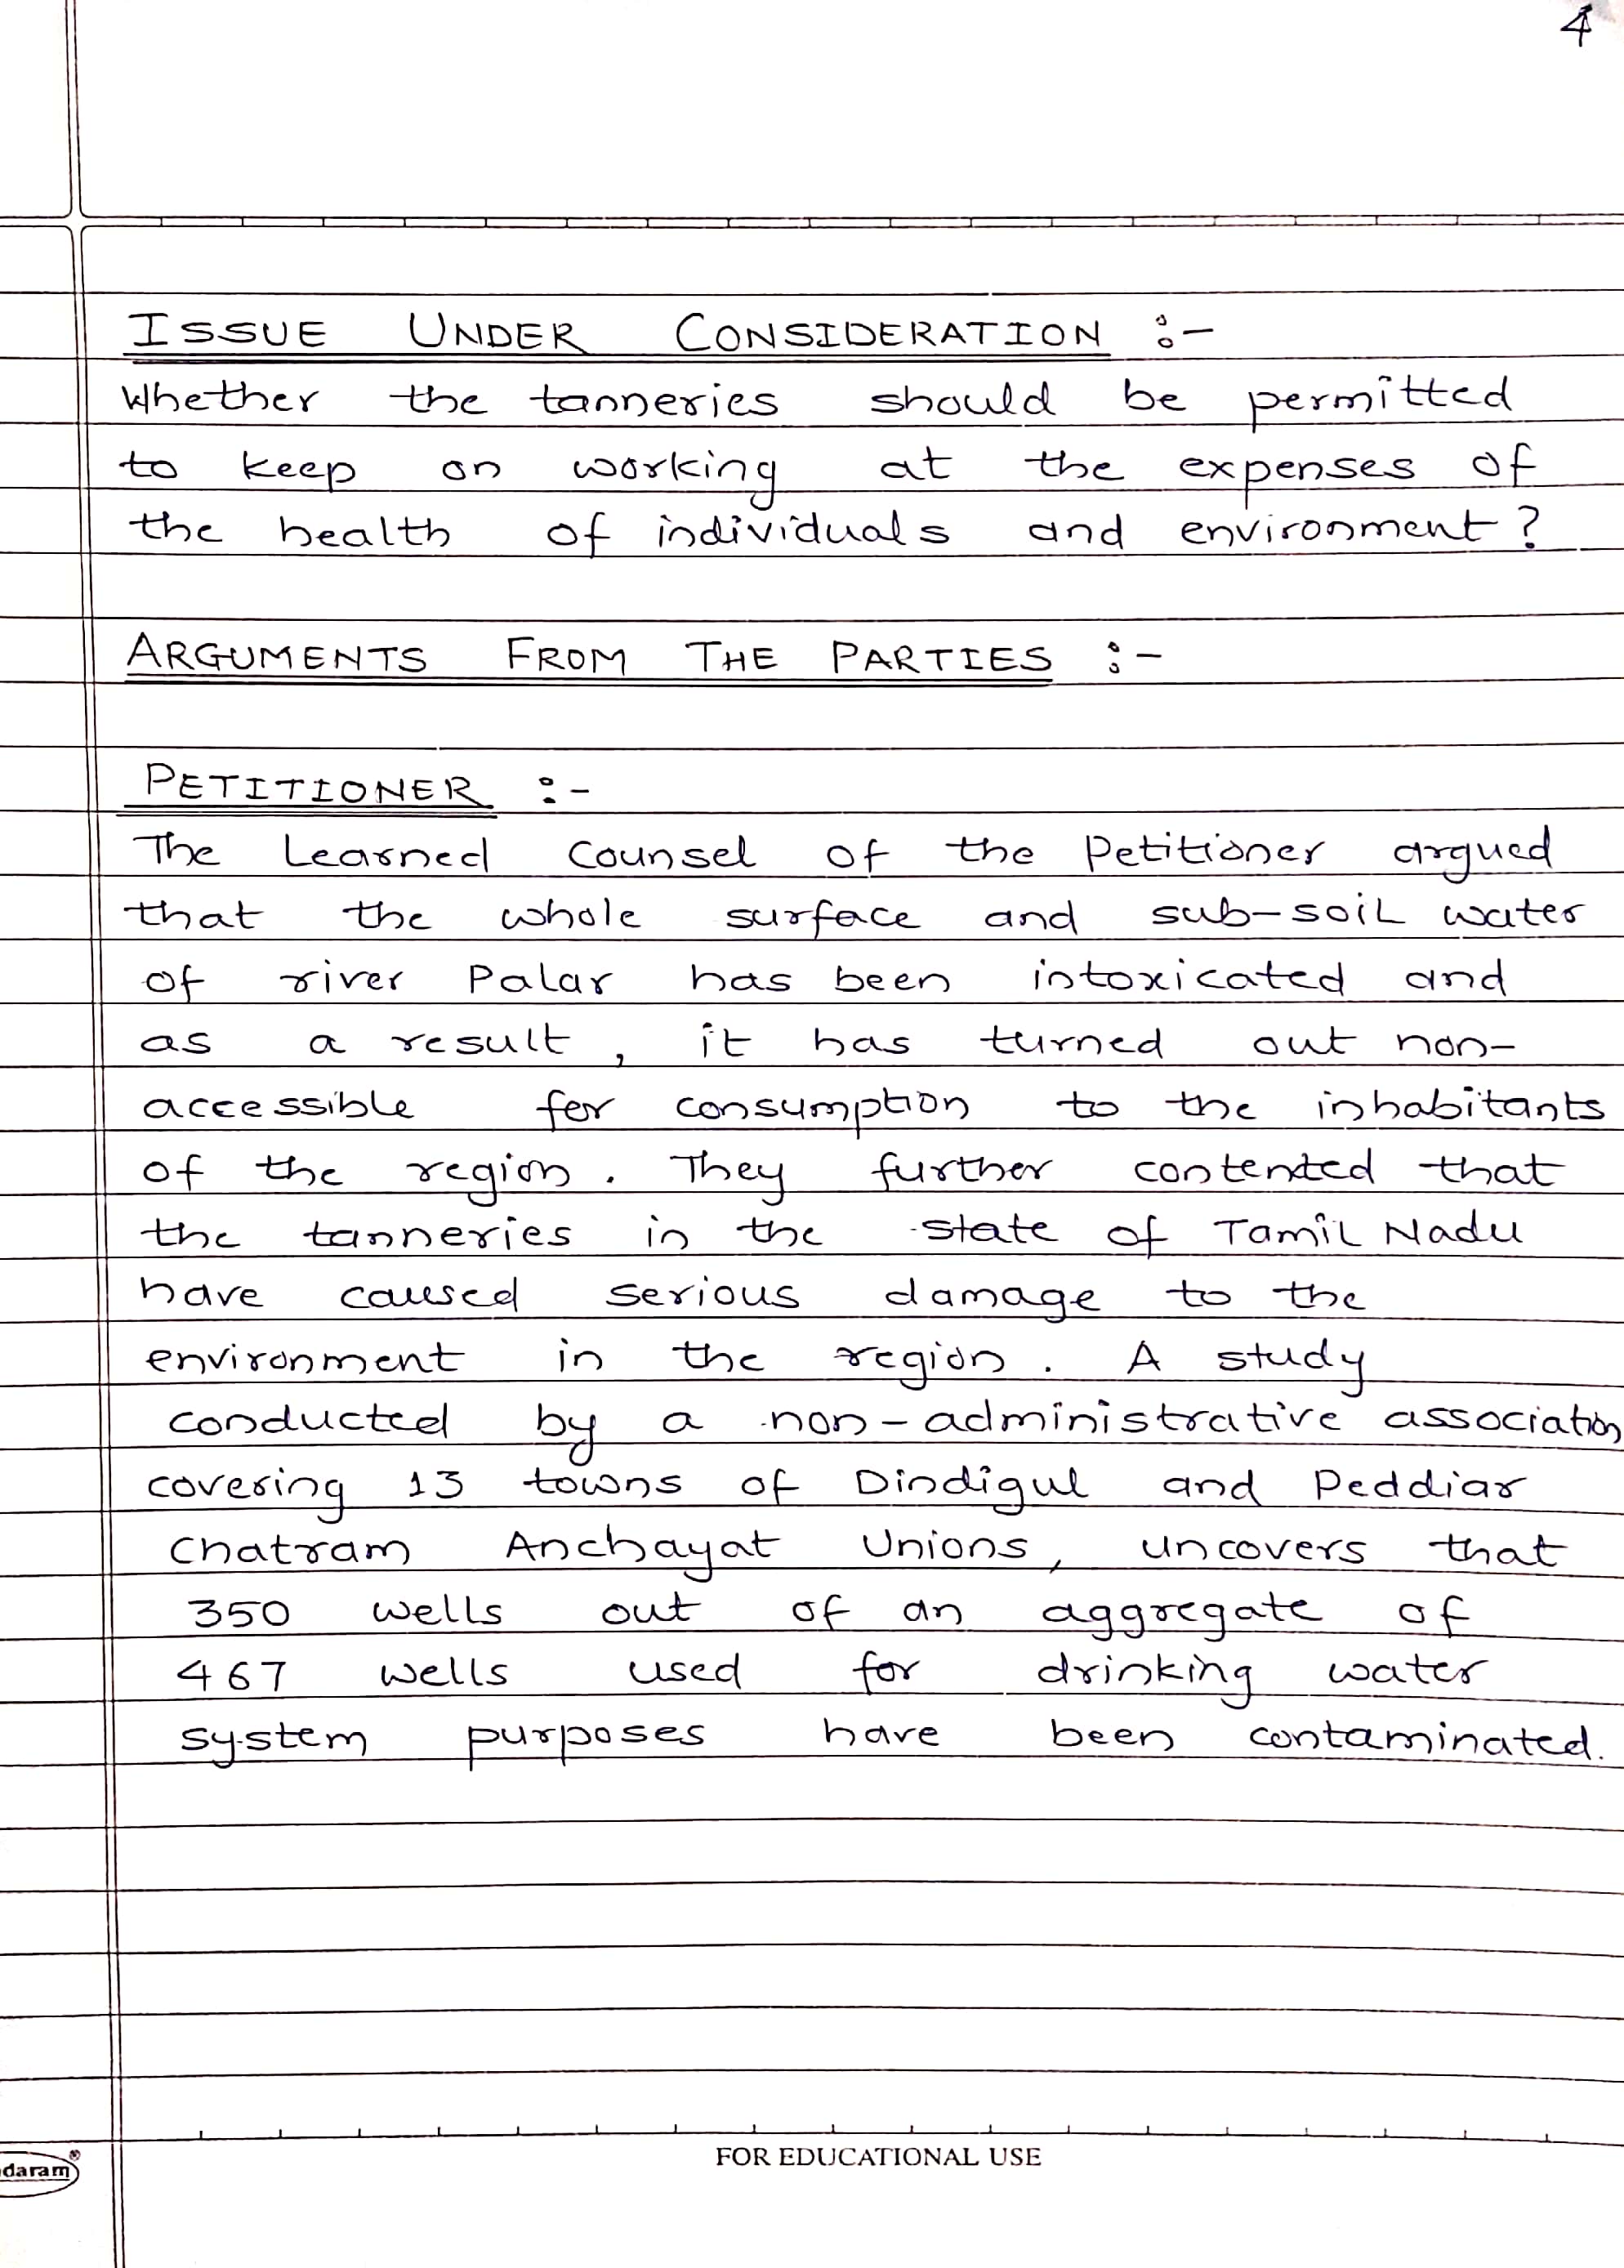 4
ISSUE UNDER CONSIDERATION :-
Whether the tanneries should be permitted
to keep on working at the expenses of
the health of individuals and environment ?
ARGUMENTS FROM THE PARTIES :-
PETITIONER :-
The Learned Counsel of the Petitioner argued
that the whole surface and sub-soil water
of river Palar has been intoxicated and
as a result , it has turned out non-
accessible for consumption to the inhabitants
of the region . They further contented that
the tanneries in the state of Tamil Nadu
have caused serious damage to the
environment in the region . A study
conducted by a non-administrative association
covering 13 towns of Dindigul and Peddiar
Chatram Anchayat Unions, uncovers that
350 wells out of an aggregate of
467 wells used for drinking water
system purposes have been contaminated.
FOR EDUCATIONAL USE
daram®